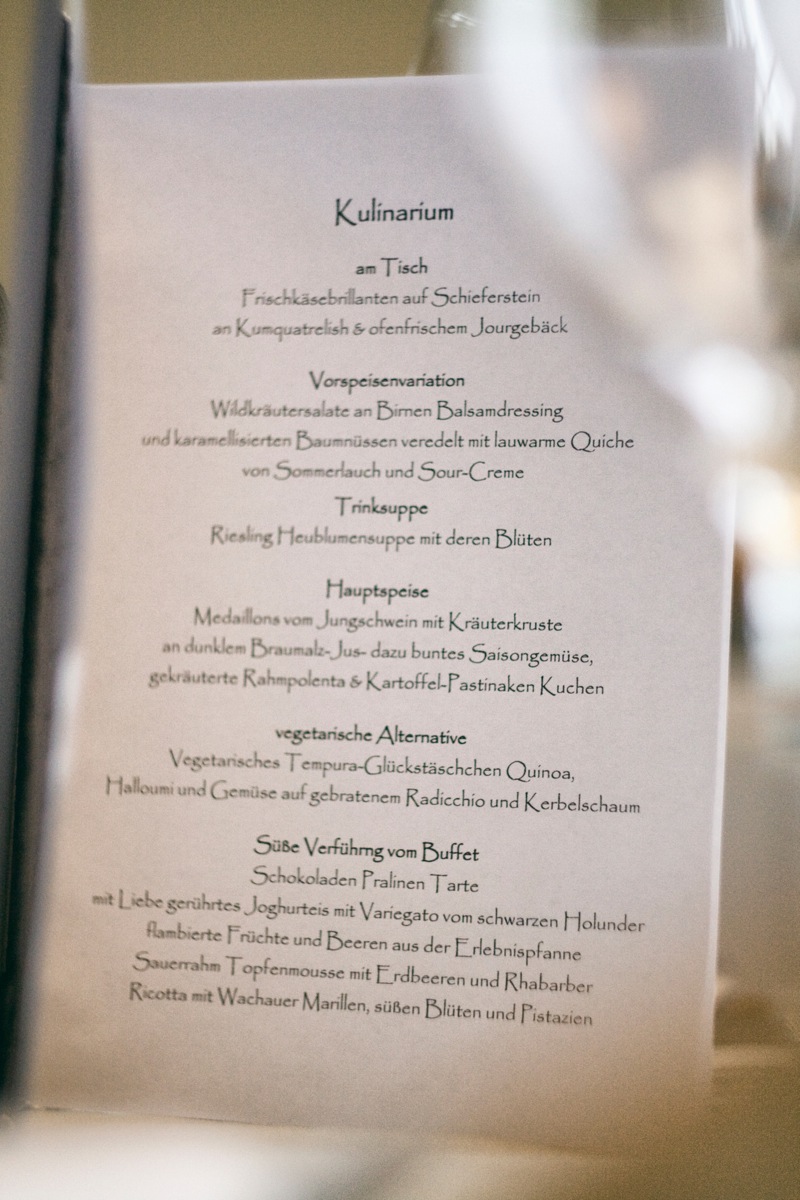 Kulinarium
am Tisch
Frischkäsebrillanten auf Schieferstein
an Kumquatrelish & ofenfrischem Jourgebäck
Vorspeisenvariation
Wildkräutersalate an Birnen Balsamdressing
und karamellisierten Baumnüssen veredelt mit lauwarme Quiche
von Sommerlauch und Sour-Creme
Trinksuppe
Riesling Heublumensuppe mit deren Blüten
Hauptspeise
Medaillons vom Jungschwein mit Kräuterkruste
an dunklem Braumalz-Jus- dazu buntes Saisongemüse,
gekräuterte Rahmpolenta & Kartoffel-Pastinaken Kuchen
vegetarische Alternative
Vegetarisches Tempura-Glückstäschchen Quinoa,
Halloumi und Gemüse auf gebratenem Radicchio und Kerbelschaum
Süße Verführng vom Buffet
Schokoladen Pralinen Tarte
mit Liebe gerührtes Joghurteis mit Variegato vom schwarzen Holunder
flambierte Früchte und Beeren aus der Erlebnispfanne
Sauerrahm Topfenmousse mit Erdbeeren und Rhabarber
Ricotta mit Wachauer Marillen, süßen Blüten und Pistazien